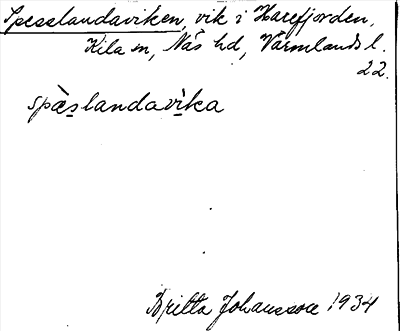 Spesslandaviken, vik i Harefjorden,
Kila sn, Näs hd, Värmlands l.
22.
spæ̀slandavìka
Britta Johansson 1934